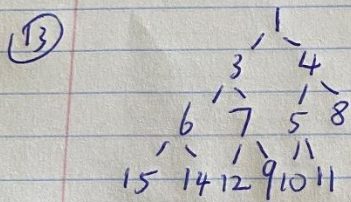 13
1
3 4
6 7 5 8
15 14 12 9 10 11